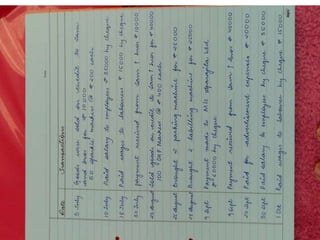 Date Transactions
5 July Goods were sold on credit to Sam
and Sues for ₹ 10000
50 @ ₹ 200 each.
10 July Paid salary to employees ₹ 30000 by cheque
15 July Paid wages to labourers ₹ 15000 by cheque
20 July payment received from Sam & Sues ₹ 10000
25 august Sold goods on credit to Sam & Sues for ₹ 40000
100 @ ₹ 400 each
26 august Bought a packing machine for ₹ 25000
28 august Bought a labelling machine for ₹ 20000
2 Sept Payment made to M/S Ltd.
by cheque
9 Sept Payment received from Sam & Sues ₹ 40000
20 Sept Paid for advertisement expenses ₹ 20000
30 Sept Paid salary to employees by cheque ₹ 30000
1 Oct Paid wages to labours by cheque ₹ 15000